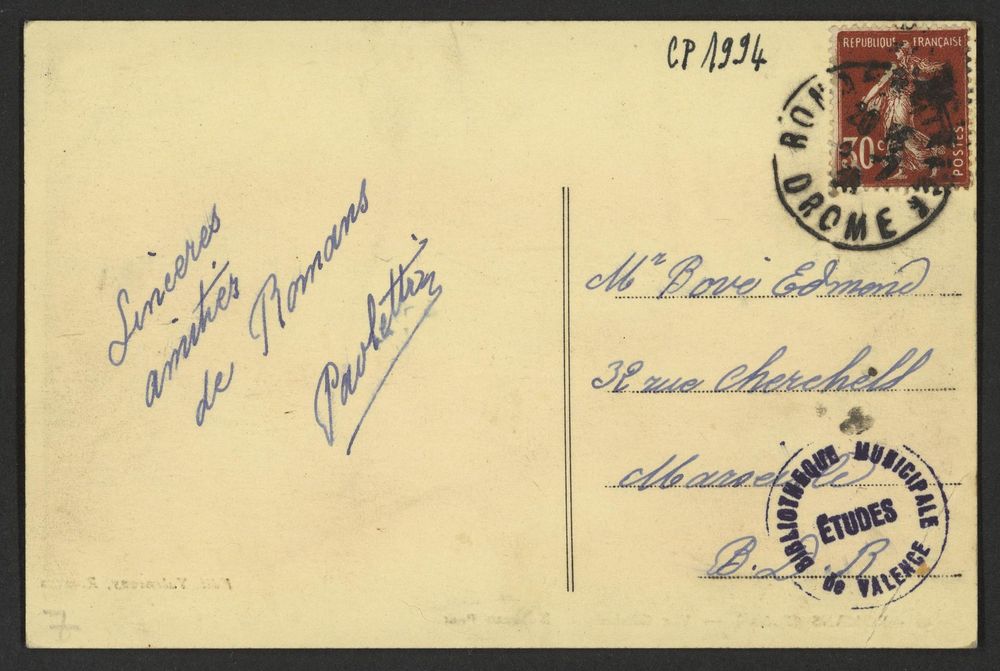 CP 1994
REPUBLIQUE FRANÇAISE
30 c
POSTES
DROME
Sinceres
amitiés
de Romans
Mr Bové Edmond
32 rue Cherchell
Marseille
B. D. R
BIBLIOTHEQUE MUNICIPALE
ÉTUDES
de VALENCE